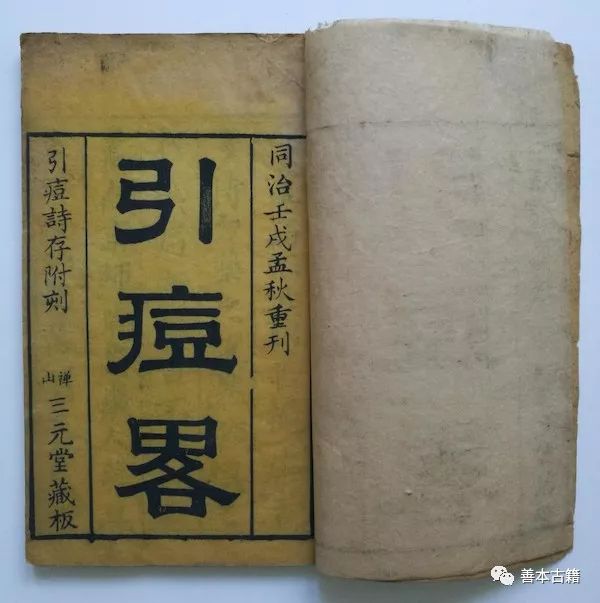 同治壬戌孟秋重刊
引痘畧
引痘詩存附刻
禅山
三元堂藏板
善本古籍